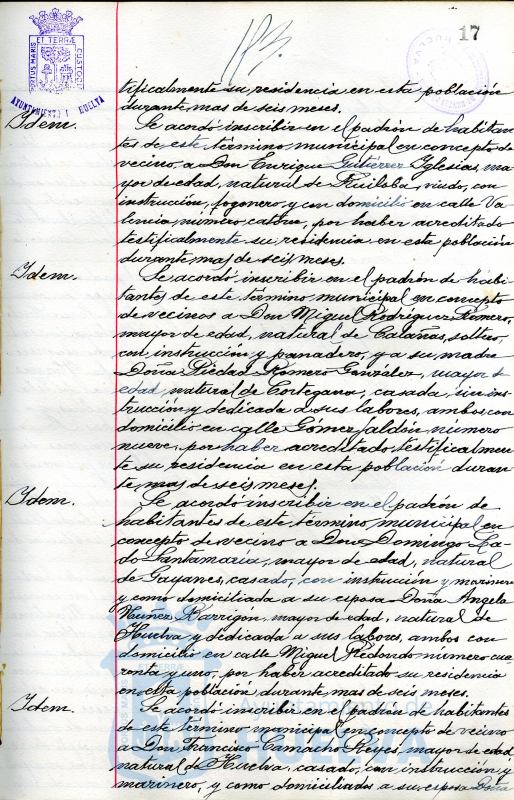 17
PORTUS MARIS ET TERRÆ CUSTODIA
AYUNTAMIENTO HUELVA
tificalmente su residencia en esta población
durante mas de seis meses.
Idem. Se acordó inscribir en el padrón de habitan-
tes de este término municipal en concepto de
vecino, a Don Enrique Gutiérrez Iglesias, ma-
yor de edad, natural de Ruiloba, viudo, con
instrucción, fogonero, y con domicilio en calle Va-
lencia, número catorce, por haber acreditado
testificalmente su residencia en esta población
durante mas de seis meses.
Idem. Se acordó inscribir en el padrón de habi-
tantes de este término municipal en concepto
de vecinos a Don Miguel Rodríguez Romero,
mayor de edad, natural de Calañas, soltero,
con instrucción y panadero, y a su madre
Doña Piedad Romero González, mayor de
edad, natural de Cortegana, casada, sin ins-
trucción y dedicada a sus labores, ambos con
domicilio en calle Gómez Jaldón número
nueve, por haber acreditado testificalmen-
te su residencia en esta población duran-
te mas de seis meses.
Idem. Se acordó inscribir en el padrón de
habitantes de este término municipal en
concepto de vecino a Don Domingo
Santamaría, mayor de edad, natural
de Gayanes, casado, con instrucción y marinero
y como domiciliada a su esposa Doña Angela
Núñez Barrigón, mayor de edad, natural de
Huelva y dedicada a sus labores, ambos con
domicilio en calle Miguel Redondo número cua-
renta y uno, por haber acreditado su residencia
en esta población durante mas de seis meses.
Idem. Se acordó inscribir en el padrón de habitantes
de este término municipal en concepto de vecino
a Don Francisco Camacho Reyes, mayor de edad,
natural de Huelva, casado, con instrucción y
marinero, y como domiciliados a su esposa Doña
Ayuntamiento de
HUELVA